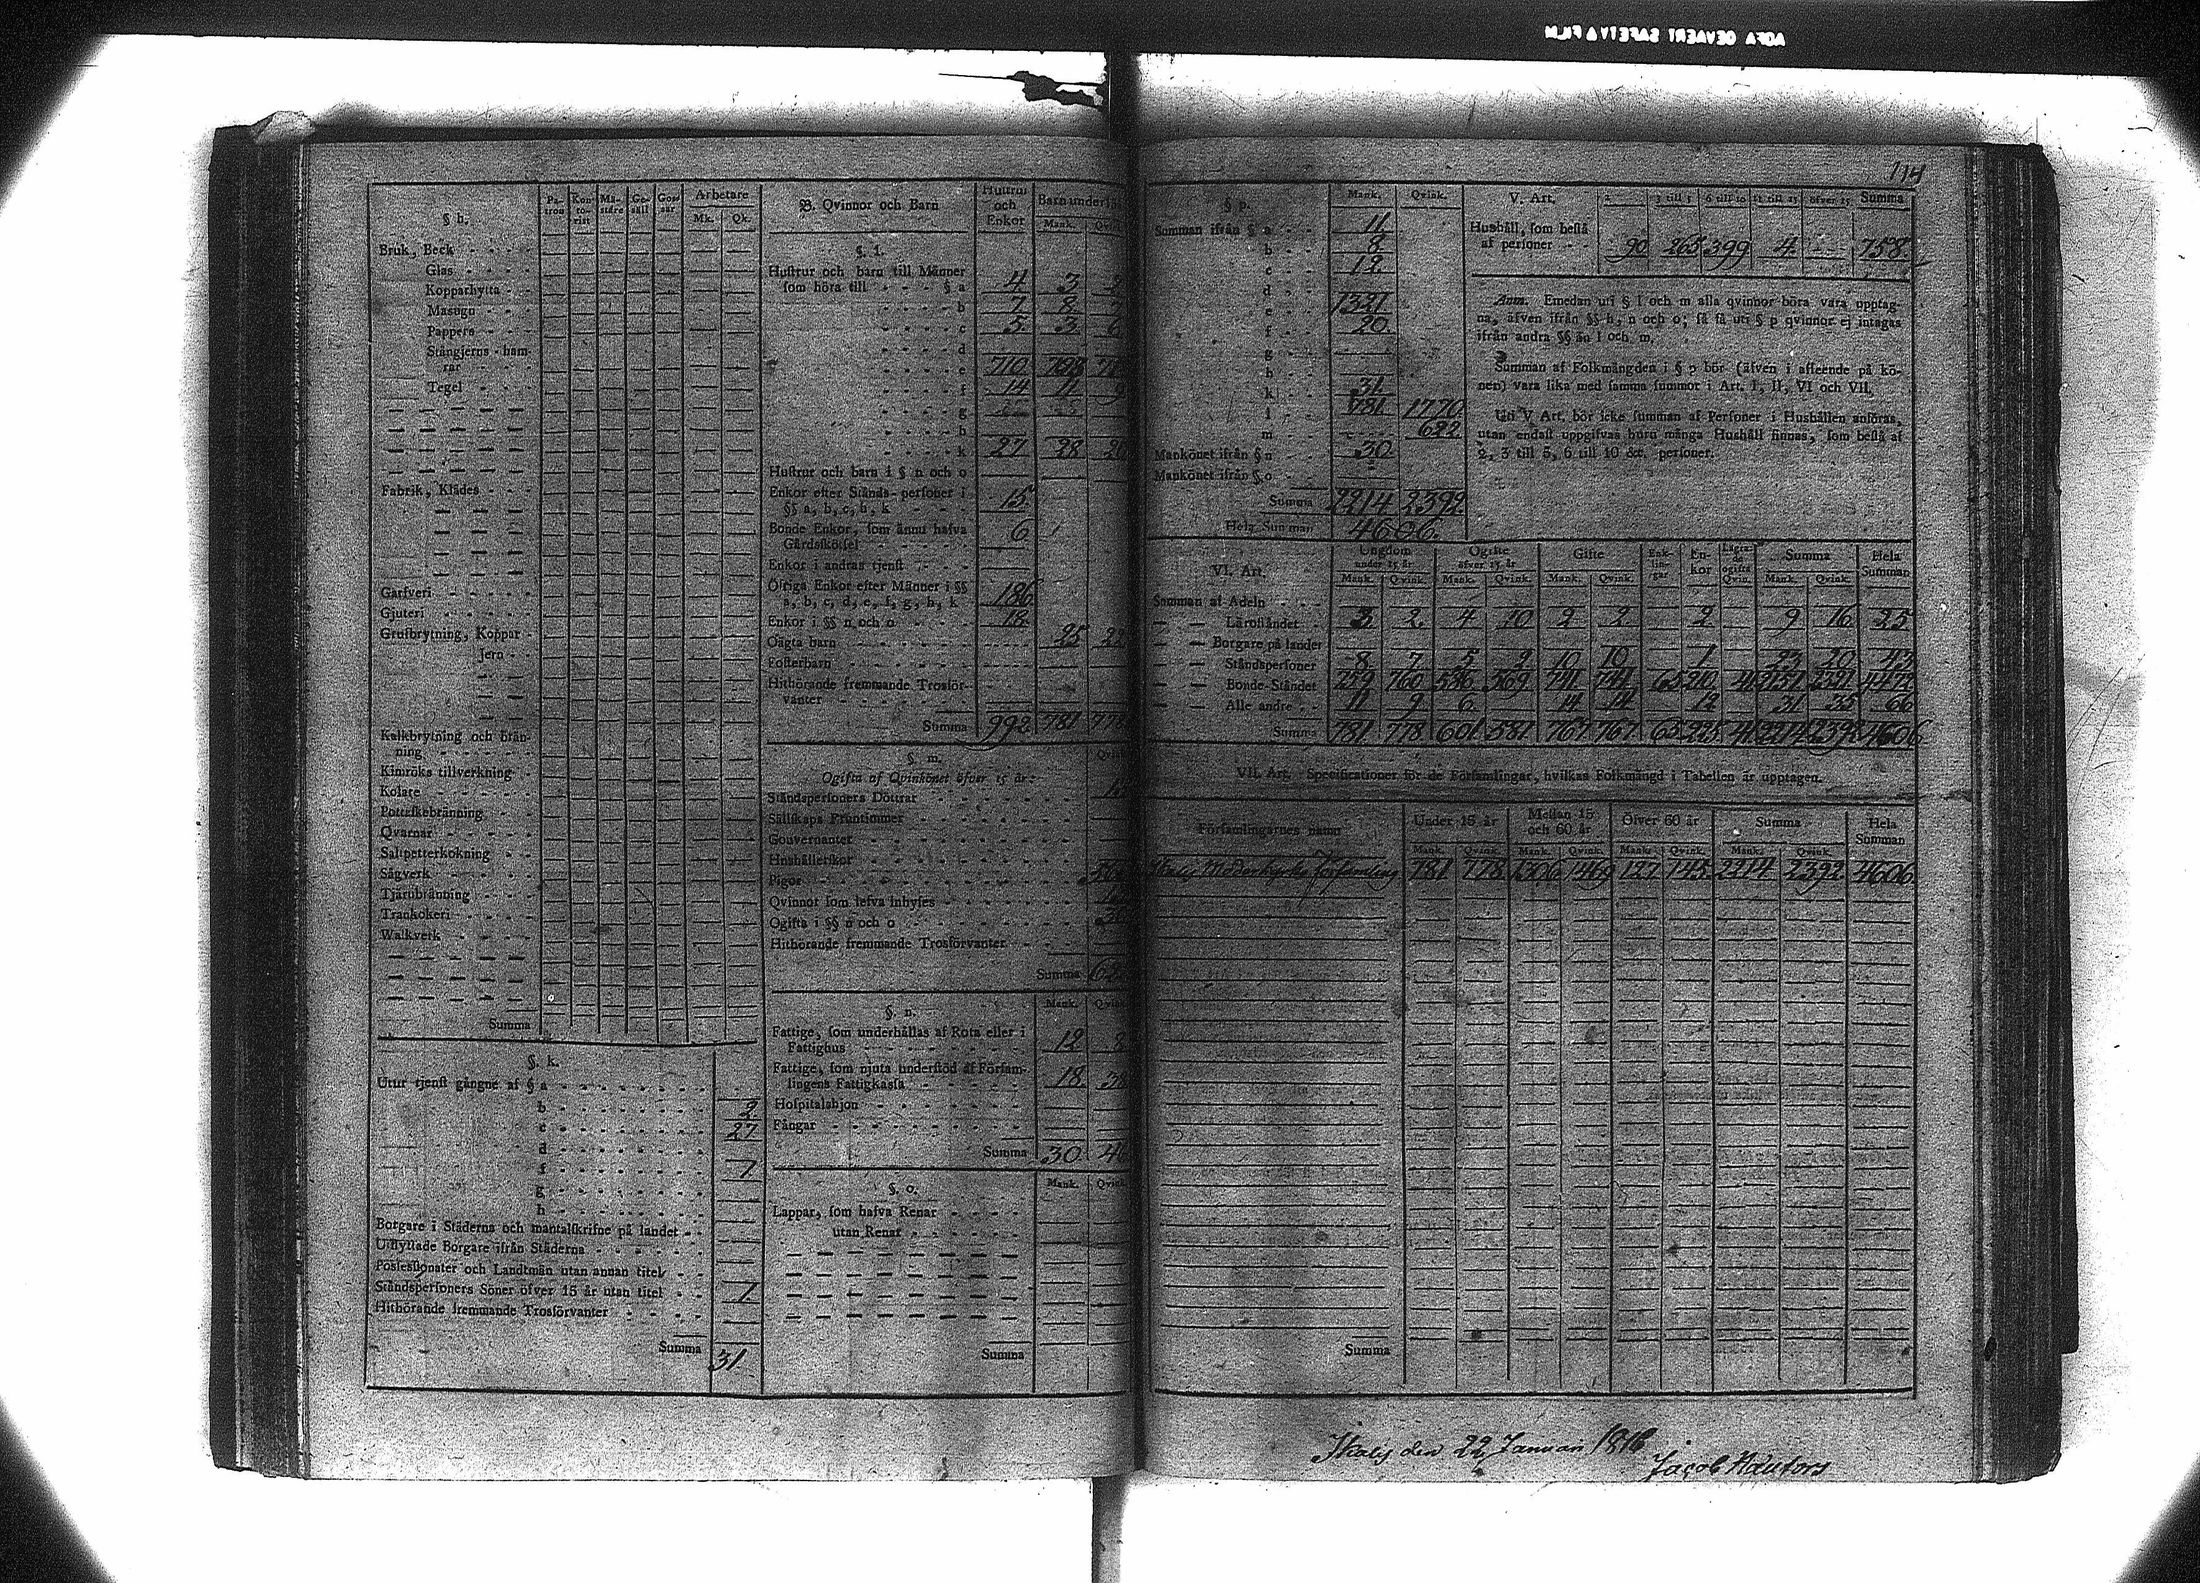 114
§ h.
Pa-tron Kon-to-rist Mä-stare Ge-säll Gos-sar Arbetare Mk. Qk.
Bruk, Beck
Glas
Kopparhytta
Masugn
Pappers
Stångjerns-ham-
rar
Tegel
Fabrik, Klädes
Garfveri
Gjuteri
Grufbrytning, Koppar
Jern
Kalkbrytning och brän-
ning
Kimröks tillverkning
Kolare
Pottaskebränning
Qvarnar
Saltpetterkokning
Sågverk
Tjärubränning
Trankokeri
Walkverk
Summa
§. k.
Utur tjenst gångne af § a
b 2
c 27
d
f 1
g
h
Borgare i Städerna och mantalskrifne på landet
Utflyttade Borgare ifrån Städerna
Possessionater och Landtmän utan annan titel
Ståndspersoners Söner öfver 15 år utan titel 1
Hithörande fremmande Trosförvanter
Summa 31
B. Qvinnor och Barn Hustrur och Enkor Barn under 15 Mank. Qvink.
§. l.
Hustrur och barn till Männer
som höra till § a 4 3 2
b 7 8
c 5 3 6
d
e 710 798
f 14 11 9
g
h
k 27 28
Hustrur och barn i § n och o
Enkor efter Stånds-personer i 15
§§ a, b, c, h, k
Bonde Enkor, som ännu hafva 6
Gårdsskötsel
Enkor i andras tjenst
Öfriga Enkor efter Männer i §§
a, b, c, d, e, f, g, h, k 186
Enkor i §§ n och o 18
Oägta barn 25
Fosterbarn
Hithörande fremmande Trosför-
vanter
Summa 992 781 778
§ m.
Ogifta af Qvinkönet öfver 15 år:
Ståndspersoners Döttrar
Sällskaps Fruntimmer
Gouvernanter
Hushållerskor
Pigor
Qvinnor som lefva inhyses
Ogifta i §§ n och o
Hithörande fremmande Trosförvanter
Summa
§. n. Mank. Qvink.
Fattige, som underhållas af Rota eller i
Fattighus 12 8
Fattige, som njuta understöd af Försam-
lingens Fattigkassa 18
Hospitalshjon
Fångar
Summa 30
§. o. Mank. Qvink.
Lappar, som hafva Renar
utan Renar
Summa
§ p. Mank. Qvink.
Summan ifrån § a 11
b 8
c 12
d
e 1321
f 20
g
h
k 31
l 781 1770
m 622
Mankönet ifrån § n 30
Mankönet ifrån § o
Summa 2214 2392
Hela Summan 4606
V. Art. 2 3 till 5 6 till 10 11 till 15 öfver 15 Summa
Hushåll, som bestå
af personer 90 265 399 4 758
Anm. Emedan uti § l och m alla qvinnor böra vara upptag-
na, äfven ifrån §§ h, n och o; så få uti § p qvinnor ej intagas
ifrån andra §§ än l och m.
Summan af Folkmängden i § p bör (äfven i afseende på kö-
nen) vara lika med samma summor i Art. I, II, VI och VII.
Uti V Art. bör icke summan af Personer i Hushållen anföras,
utan endast uppgifvas huru många Hushåll finnas, som bestå af
2, 3 till 5, 6 till 10 &c. personer.
VI. Art. Ungdom under 15 år Ogifte öfver 15 år Gifte Enk-lin-gar En-kor Lägra-de ogifta Qvin. Summa Hela Summan
Mank. Qvink. Mank. Qvink. Mank. Qvink. Mank. Qvink.
Summan af Adeln
Läroståndet 3 2 4 10 2 2 2 9 16 25
Borgare på landet
Ståndspersoner 8 7 5 2 10 10 1 23 20 43
Bonde-Ståndet 759 760 586 569 741 741 65 210 41 2151 2321 4472
Alle andre 11 9 6 14 14 12 31 35 66
Summa 781 778 601 581 767 767 65 225 41 2214 2392 4606
VII. Art. Specificationer för de Församlingar, hvilkas Folkmängd i Tabellen är upptagen.
Församlingarnes namn Under 15 år Mellan 15 och 60 år Öfver 60 år Summa Hela Summan
Mank. Qvink. Mank. Qvink. Mank. Qvink. Mank. Qvink.
Ikalis Moderkyrko församling 781 778 1306 1469 127 145 2214 2392 4606
Summa
Ikalis den 22 Januari 1816
Jacob Hautors